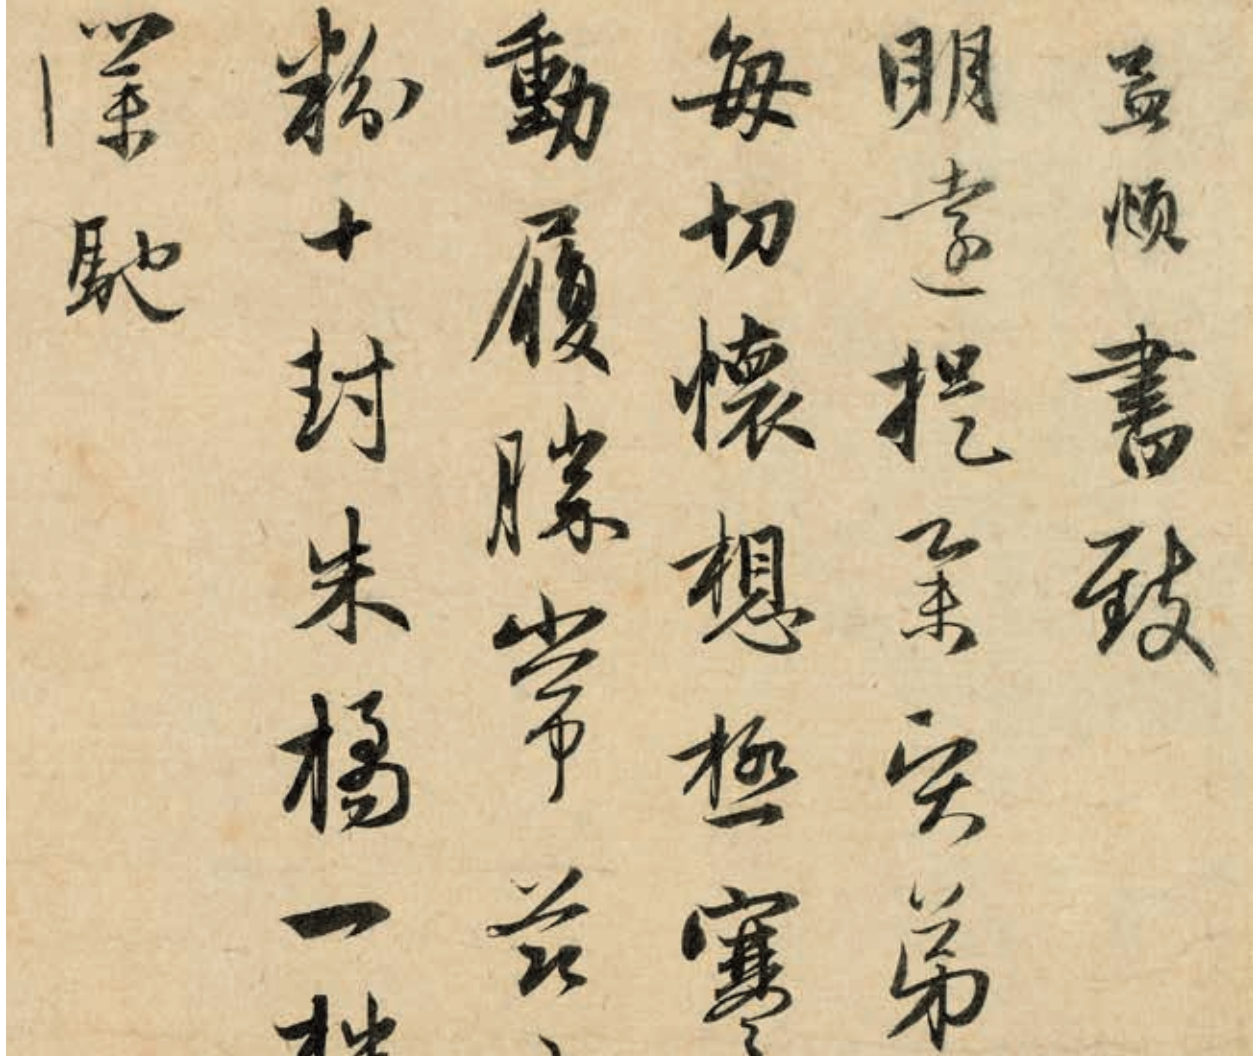 孟頫書致
明遠提弟
每切懷想極寒
動履勝常茲
粉十封朱橘一
僕馳